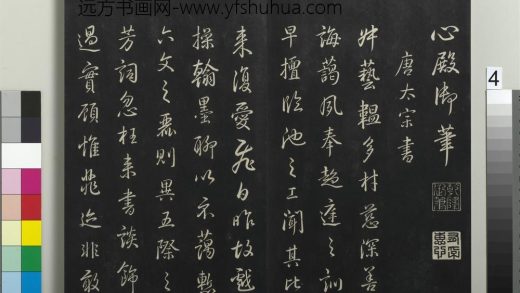 远方书画网- www.yfshuhua.com
心殿御筆
唐太宗書
藝韞多材慈深善
誨藹夙奉趨庭之訓
早擅臨池之工聞其比
来復愛飛白昨故戲
操翰墨聊以示藹慙
六文之麗則異五際之
芳詞忽枉来書談飾
過實顧惟菲迹非敢
4